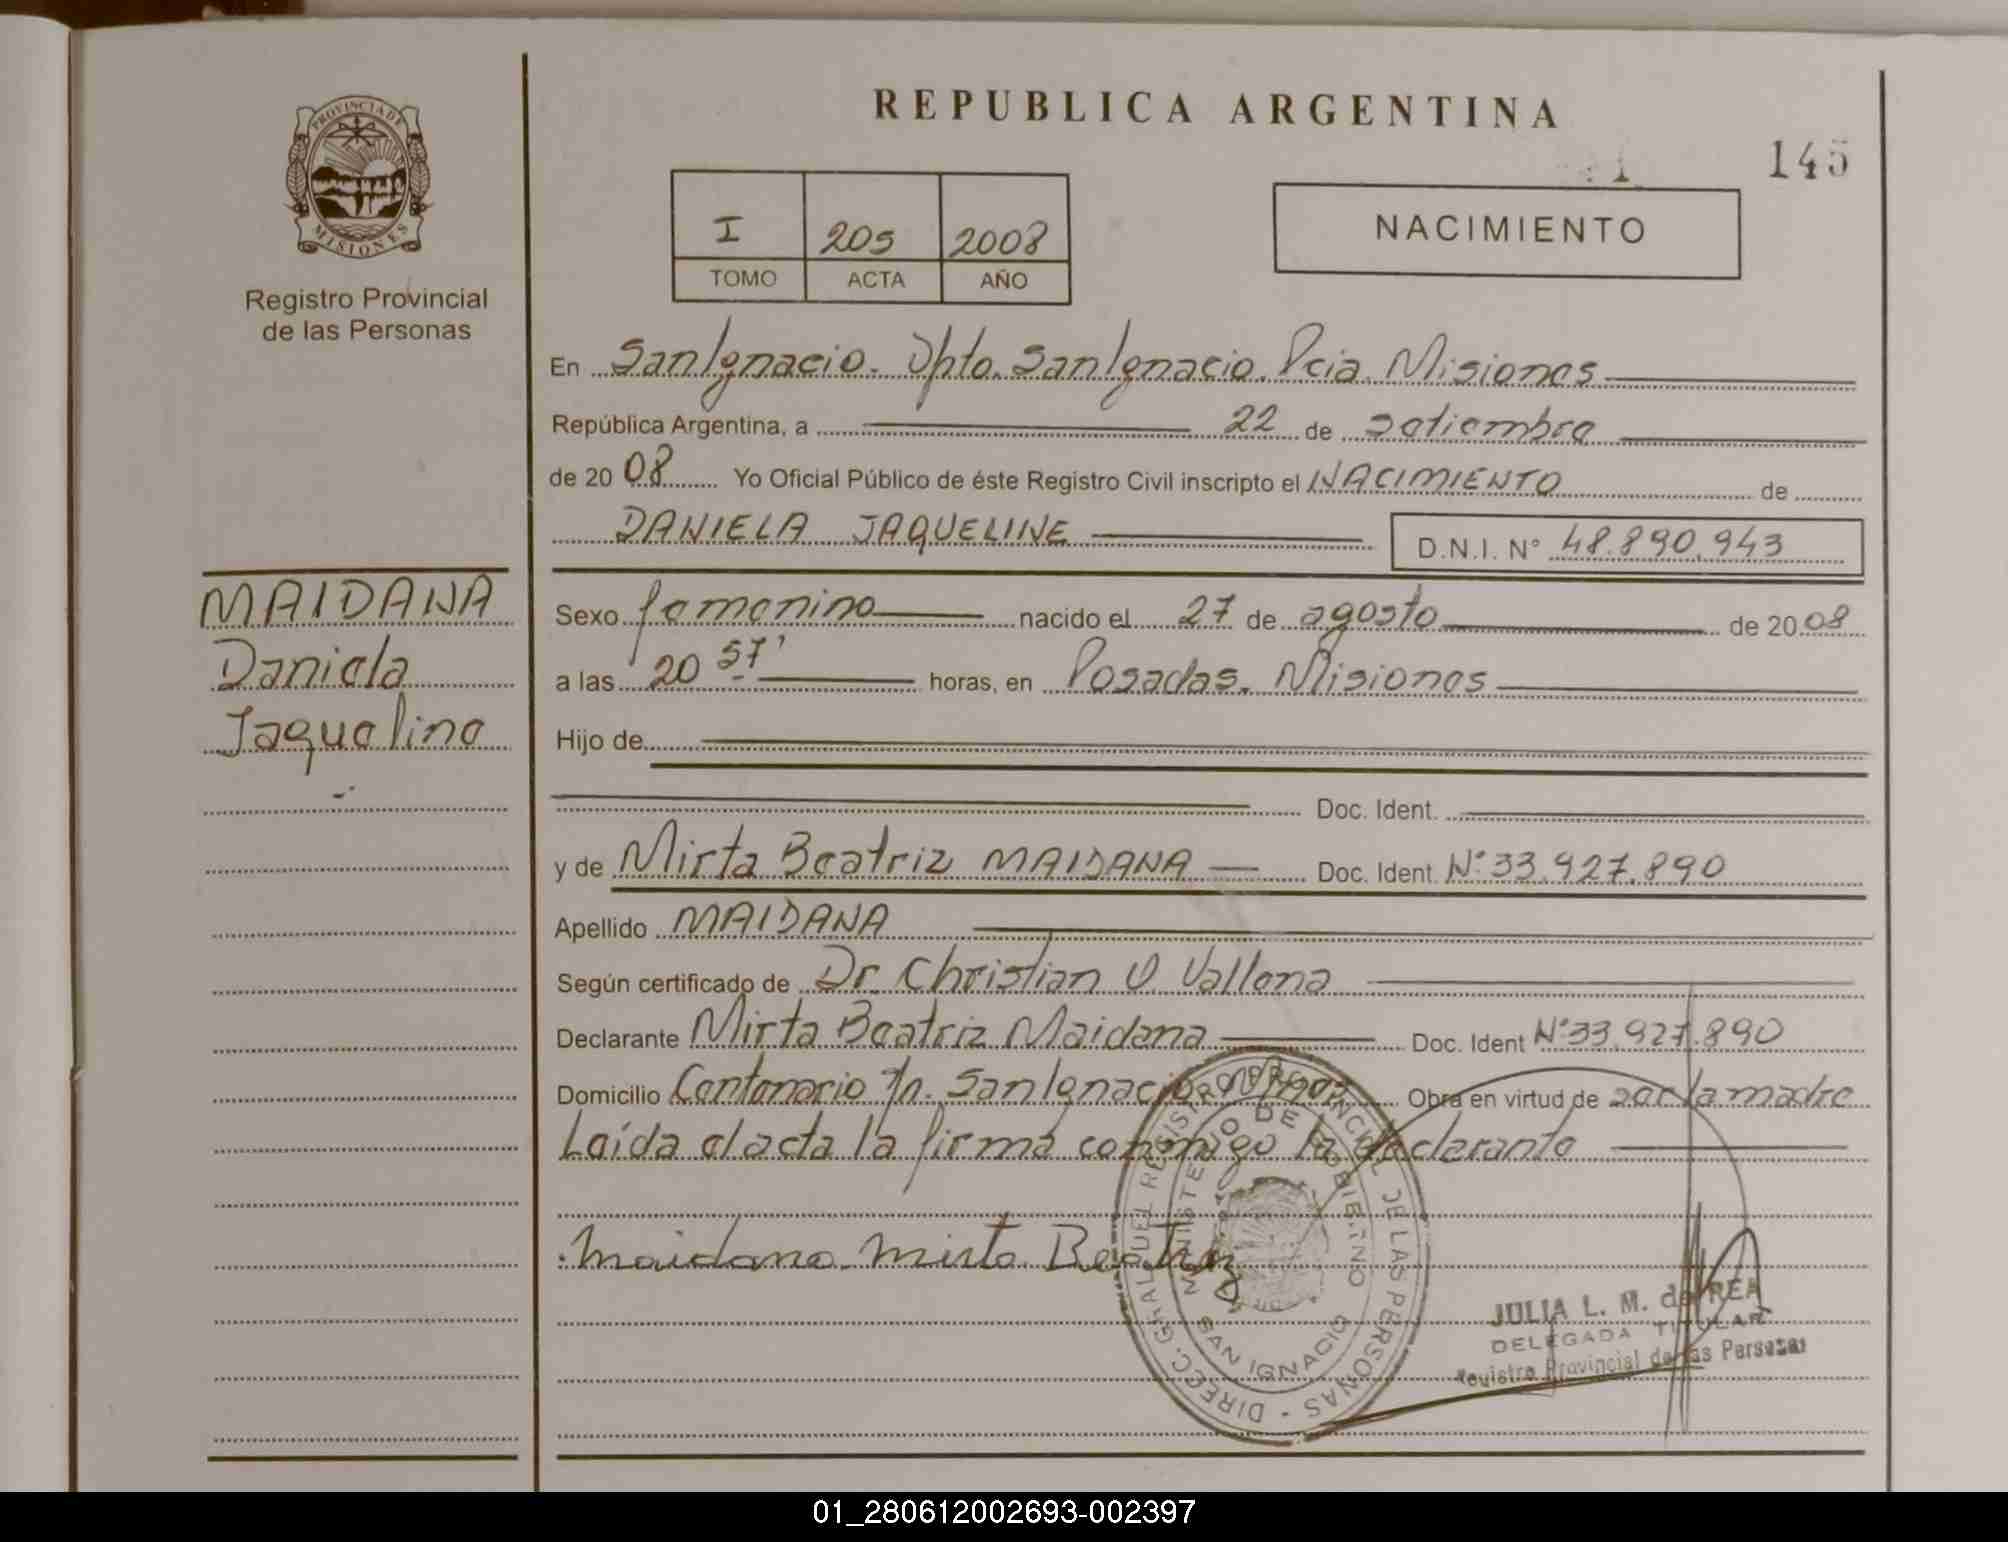 REPUBLICA ARGENTINA
145
PROVINCIA DE
MISIONES
Registro Provincial
de las Personas
I 205 2008
TOMO ACTA AÑO
NACIMIENTO
En San Ignacio. Dpto. San Ignacio. Pcia. Misiones
República Argentina, a 22 de Setiembre
de 2008 Yo Oficial Público de éste Registro Civil inscripto el NACIMIENTO de
DANIELA JAQUELINE D.N.I. N° 48.890.943
MAIDANA
Daniela
Jaqueline
Sexo femenino nacido el 27 de agosto de 2008
a las 20 57' horas, en Posadas. Misiones
Hijo de
Doc. Ident.
y de Mirta Beatriz MAIDANA Doc. Ident. N° 33.927.890
Apellido MAIDANA
Según certificado de Dr. Christian O
Declarante Mirta Beatriz Maidana Doc. Ident N° 33.927.890
Domicilio Centenario s/n. San Ignacio Mnes Obra en virtud de ser la madre
Leída el acta la firma conmigo la declarante
Maidana Mirta Beatriz
DIREC. GRAL. DEL REGISTRO PROVINCIAL DE LAS PERSONAS
MINISTERIO DE GOBIERNO
SAN IGNACIO
JULIA L. M. de REA
DELEGADA TITULAR
Registro Provincial de las Personas
01_280612002693-002397